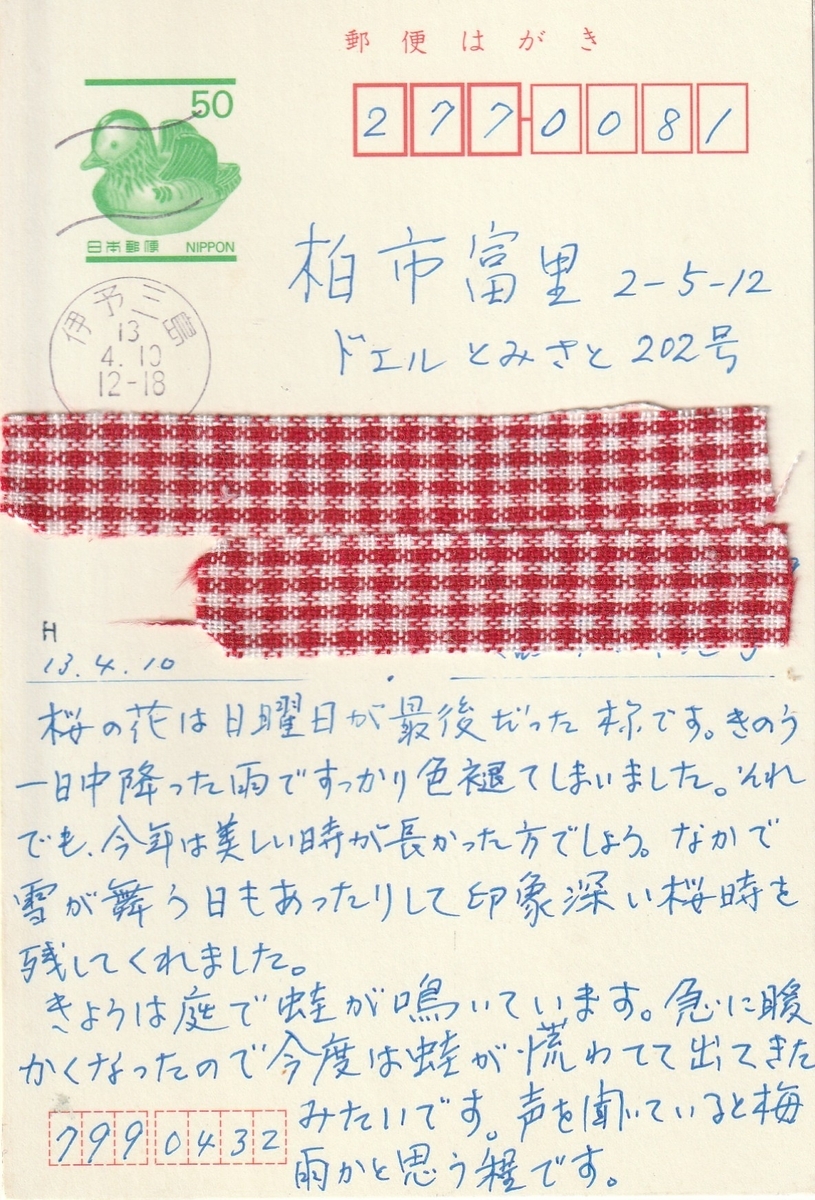 郵便はがき
50
277-0081
日本郵便 NIPPON
柏市富里 2-5-12
ドエルとみさと 202号
伊予三島
13
4.10
12-18
H
13.4.10
桜の花は日曜日が最後だった様です。きのう
一日中降った雨ですっかり色褪てしまいました。それ
でも、今年は美しい時が長かった方でしょう。なかで
雪が舞う日もあったりして印象深い桜時を
残してくれました。
きょうは庭で蛙が鳴いています。急に暖
かくなったので今度は蛙が慌わてて出てきた
みたいです。声を聞いていると梅
雨かと思う程です。
7990432